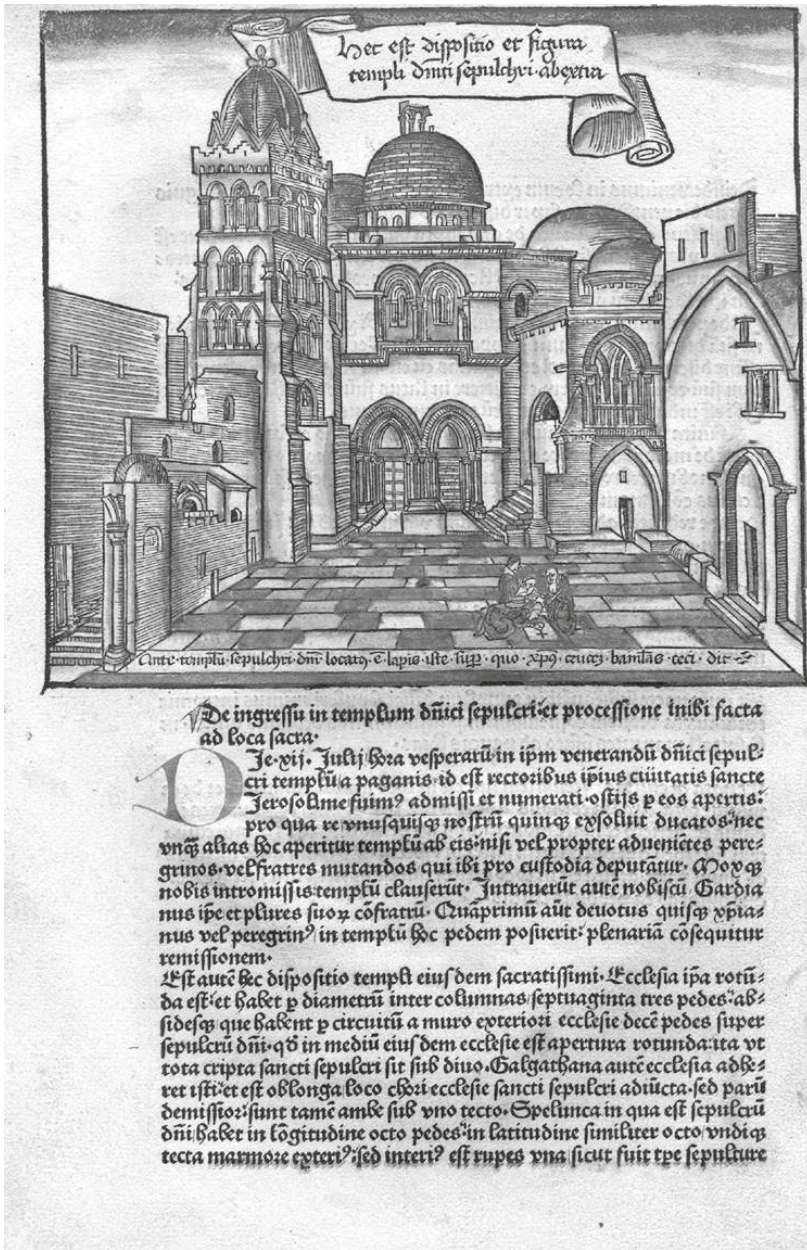 Hec est dispositio et figura
templi dn̄ici sepulchri abextra
Ante templū sepulchri dn̄i locatꝰ ē lapis iste supꝑ quo xp̄s crucē baiulās ceci dit
De ingressu in templum dn̄ici sepulcri: et processione inibi facta
ad loca sacra.
DIe. xij. Julij hora vesperarū in ip̄m venerandū dn̄ici sepul⸗
cri templū a paganis. id est rectoribus ip̄ius ciuitatis sancte
Ierosolime fuimꝰ admissi et numerati. ostijs ꝑ eos apertis:
pro qua re vnusquisqꝫ nostrū quinqꝫ exsoluit ducatos: nec
vnqꝫ alias hoc aperitur templū ab eis: nisi vel propter adueniētes pere⸗
grinos. vel fratres mutandos qui ibi pro custodia deputātur. Moxqꝫ
nobis intromissis templū clauserūt. Intrauerūt autē nobiscū Gardia
nus ip̄e et plures suoꝝ cōfratrū. Quāprimū aūt deuotus quisqꝫ xp̄ia⸗
nus vel peregrinꝰ in templū hoc pedem posuerit: plenariā cōsequitur
remissionem.
Est autē hec dispositio templi eiusdem sacratissimi. Ecclesia ip̄a rotū⸗
da est: et habet ꝑ diametrū inter columnas septuaginta tres pedes: ab⸗
sidesqꝫ que habent ꝑ circuitū a muro exteriori ecclesie decē pedes super
sepulcrū dn̄i. qd̄ in mediū eiusdem ecclesie est apertura rotunda: ita vt
tota cripta sancti sepulcri sit sub diuo. Galgathana autē ecclesia adhe⸗
ret isti: et est oblonga loco chori ecclesie sancti sepulcri adiūcta. sed parū
demissior: sunt tamē ambe sub vno tecto. Spelunca in qua est sepulcrū
dn̄i habet in lōgitudine octo pedes: in latitudine similiter octo vndiqꝫ
tecta marmore exteriꝰ: sed interiꝰ est rupes vna sicut fuit tꝑe sepulture